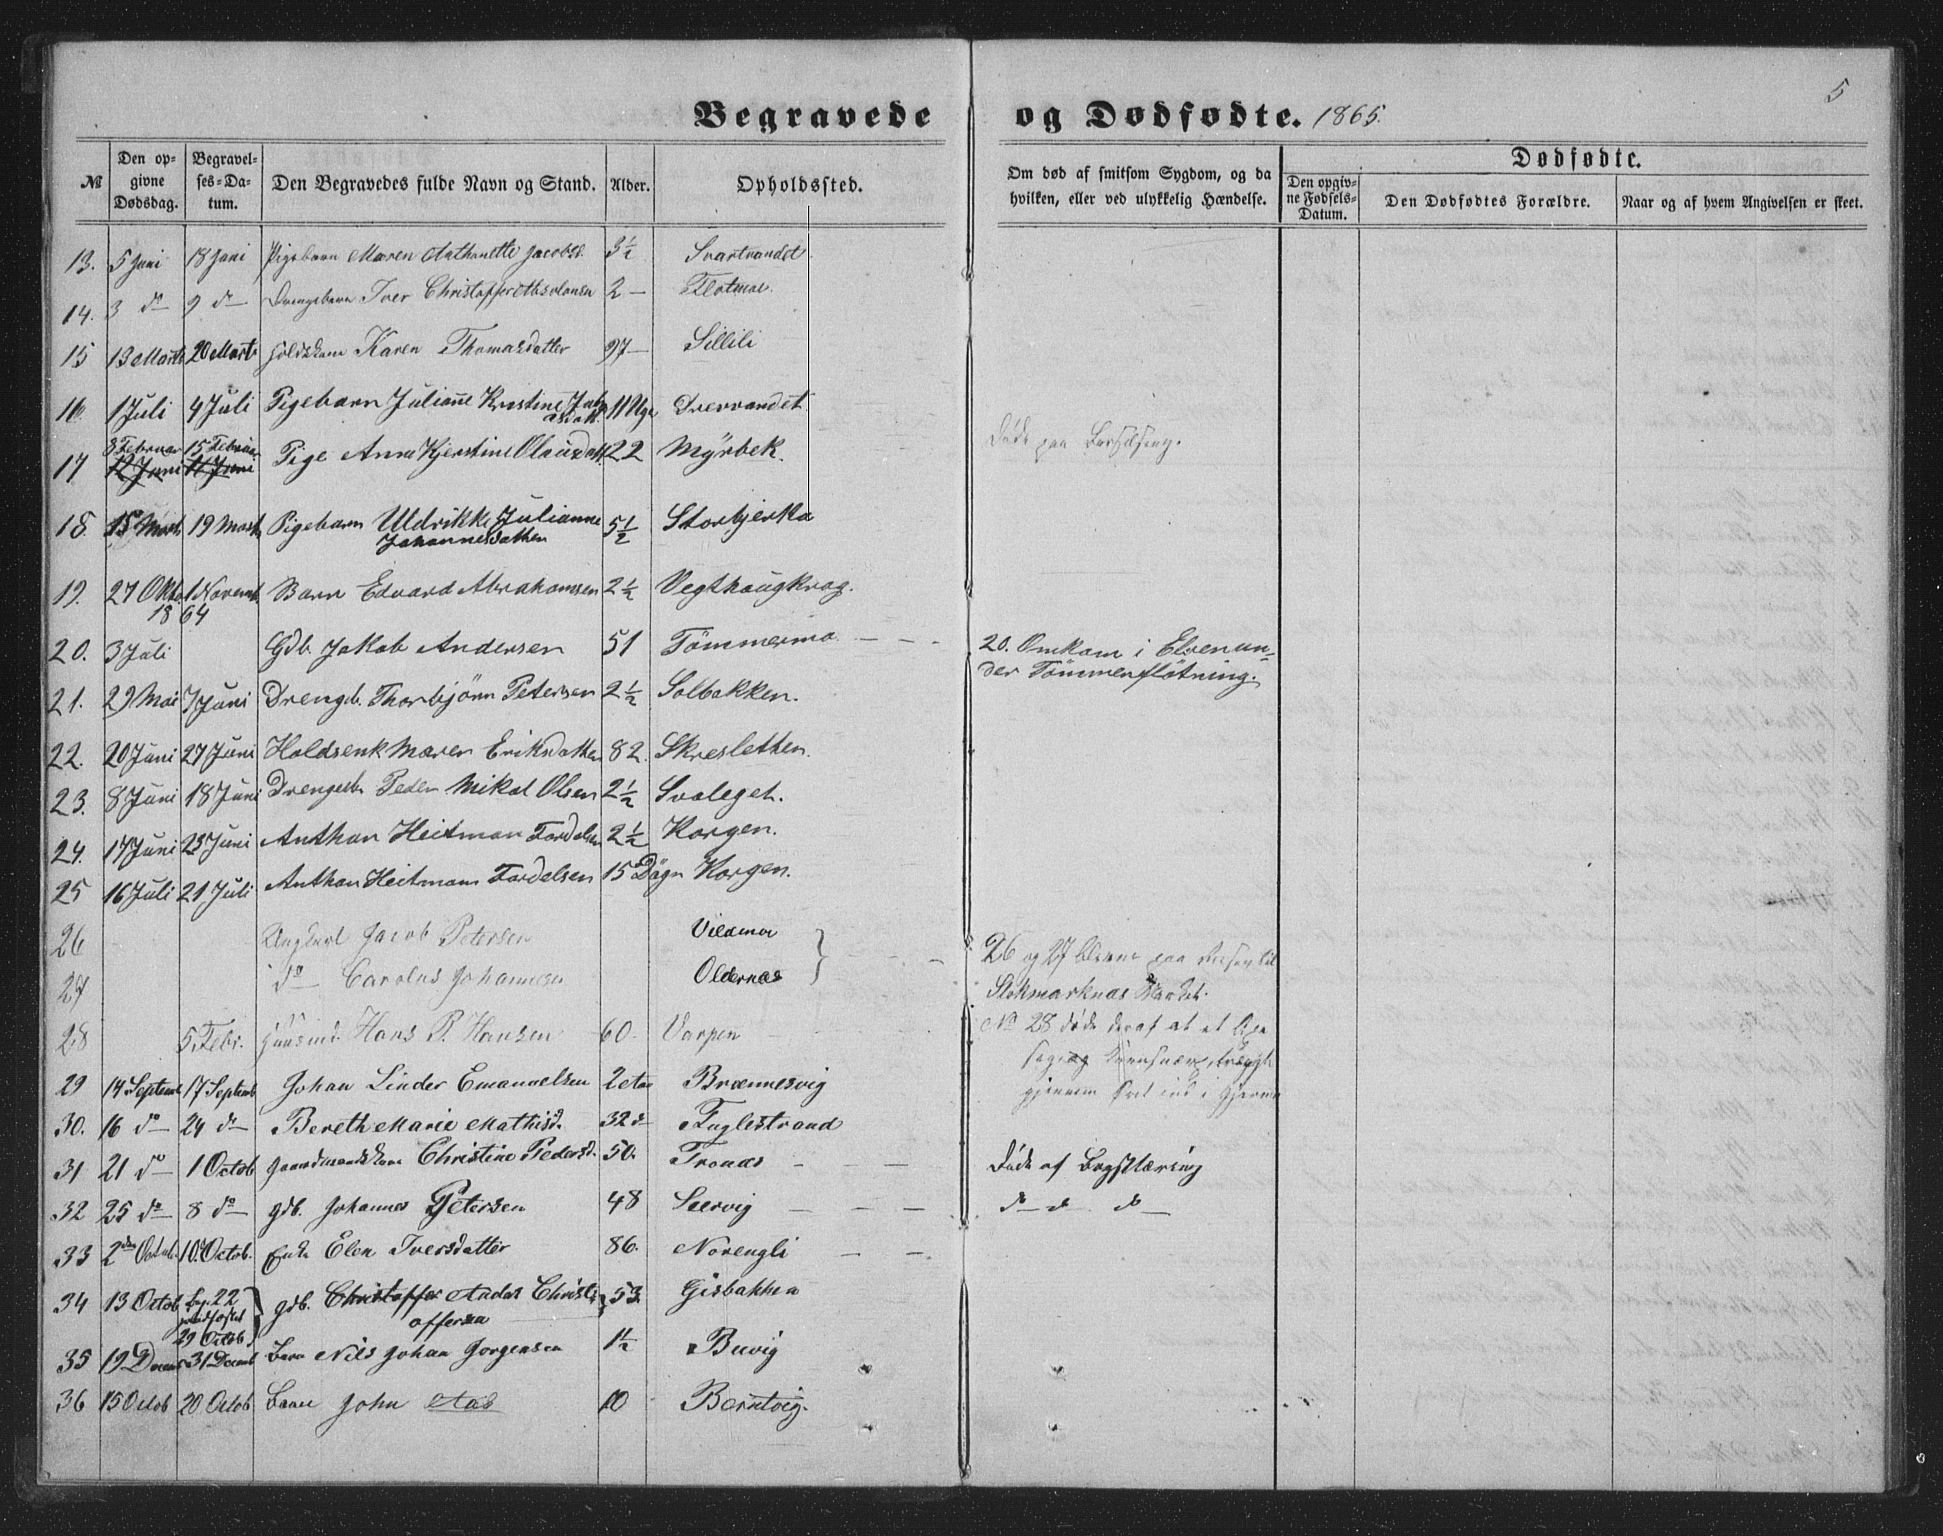 5
Begravede og Dødfødte. 1865.
№
Den opgivne Dødsdag.
Begravelses-Datum.
Den Begravedes fulde Navn og Stand.
Alder.
Opholdssted.
Om død af smitsom Sygdom, og da hvilken, eller ved ulykkelig Hændelse.
Dødfødte.
Den opgivne Fødsels-Datum.
Den Dødfødtes Forældre.
Naar og af hvem Angivelsen er skeet.
13. 5 Juni 18 Juni Pigebarn Maren Anthonette Jacobsd. 3½ Svartvandet
14. 3 do 9 do Drengebarn Iver Christoffer 2 —
15 13 Marts 20 Marts Karen Thomasdatter 97 — Sillili
16 1 Juli 4 Juli Pigebarn Julianne Kristine 11 Uge Drevvandet
8 Februar 15 Februar
17 12 Juni Pige Anna Kjerstine Olausdatt 22 Myrbek. Døde paa Barselseng.
18. 15 Marts 19 Marts Pigebarn Uldrikke Julianne 5½ Storbjerka
Johannesdatter
19. 27 Okto 1 Novemb. Barn Edvard Abrahamsen 2½ Vegthaugkrog.
18 64
20. 3 Juli Gdb. Jakob Andersen 51 Tömmermo — — - 20. Omkom i Elven un=
der Tömmerflötning.
21. 29 Mai 7 Juni Drengb. Thorbjörn Petersen 2½ Solbakken.
22. 20 Juni 27 Juni Holdsenk Maren Eriksdatter 82. Skresletten.
23. 8 Juni 18 Juni Drengeb. Peder Mikal Olsen 2½ Svaleget.
24. 17 Juni 23 Juni Anthon Heitman Fordelsen 2½ Korgen.
25 16 Juli 21 Juli Anthon Heitmann Fordelsen 15 Dögn Korgen.
26 Ungkarl Jacob Petersen Vildmo
26 og 27 bleve paa Reisen til
27 do Carolus Johannesen Oldernæs
Stokmarknæs
28 5. Febr. Huusmd. Hans P. Hansen 60. Varpen No 28 døde deraf at et
gjennem Øret ind i Hjernen
29 14 Septemb 17 Septemb Johan Linder Emanuelsen 2 Aar Brænnesvig
30. 16 do 24 do Bereth Marie Mathisd. 32 do Fuglestrand
31 21 do 1 Octob Gaardmandskone Christine Pedersd. 50. Tronæs — — Døde af
32 25 do 8 do gdb. Johannes Petersen 48 Sørvig — — — do do do
33 2den Octob. 10. Octob. Enke Elen Iversdatter 86. Norengli — —
34 13 Octob beg. 22 gdb. Christoffer Andas Christ- 53. Gisbakken
jordfæstet offersen
29 Octob
35 19 Decemb 31 Decemb Barn Nils Johan Jorgensen 1½ Buvig
36 15 Octob 20 Octob Barn John Aas 10 Berntvig.